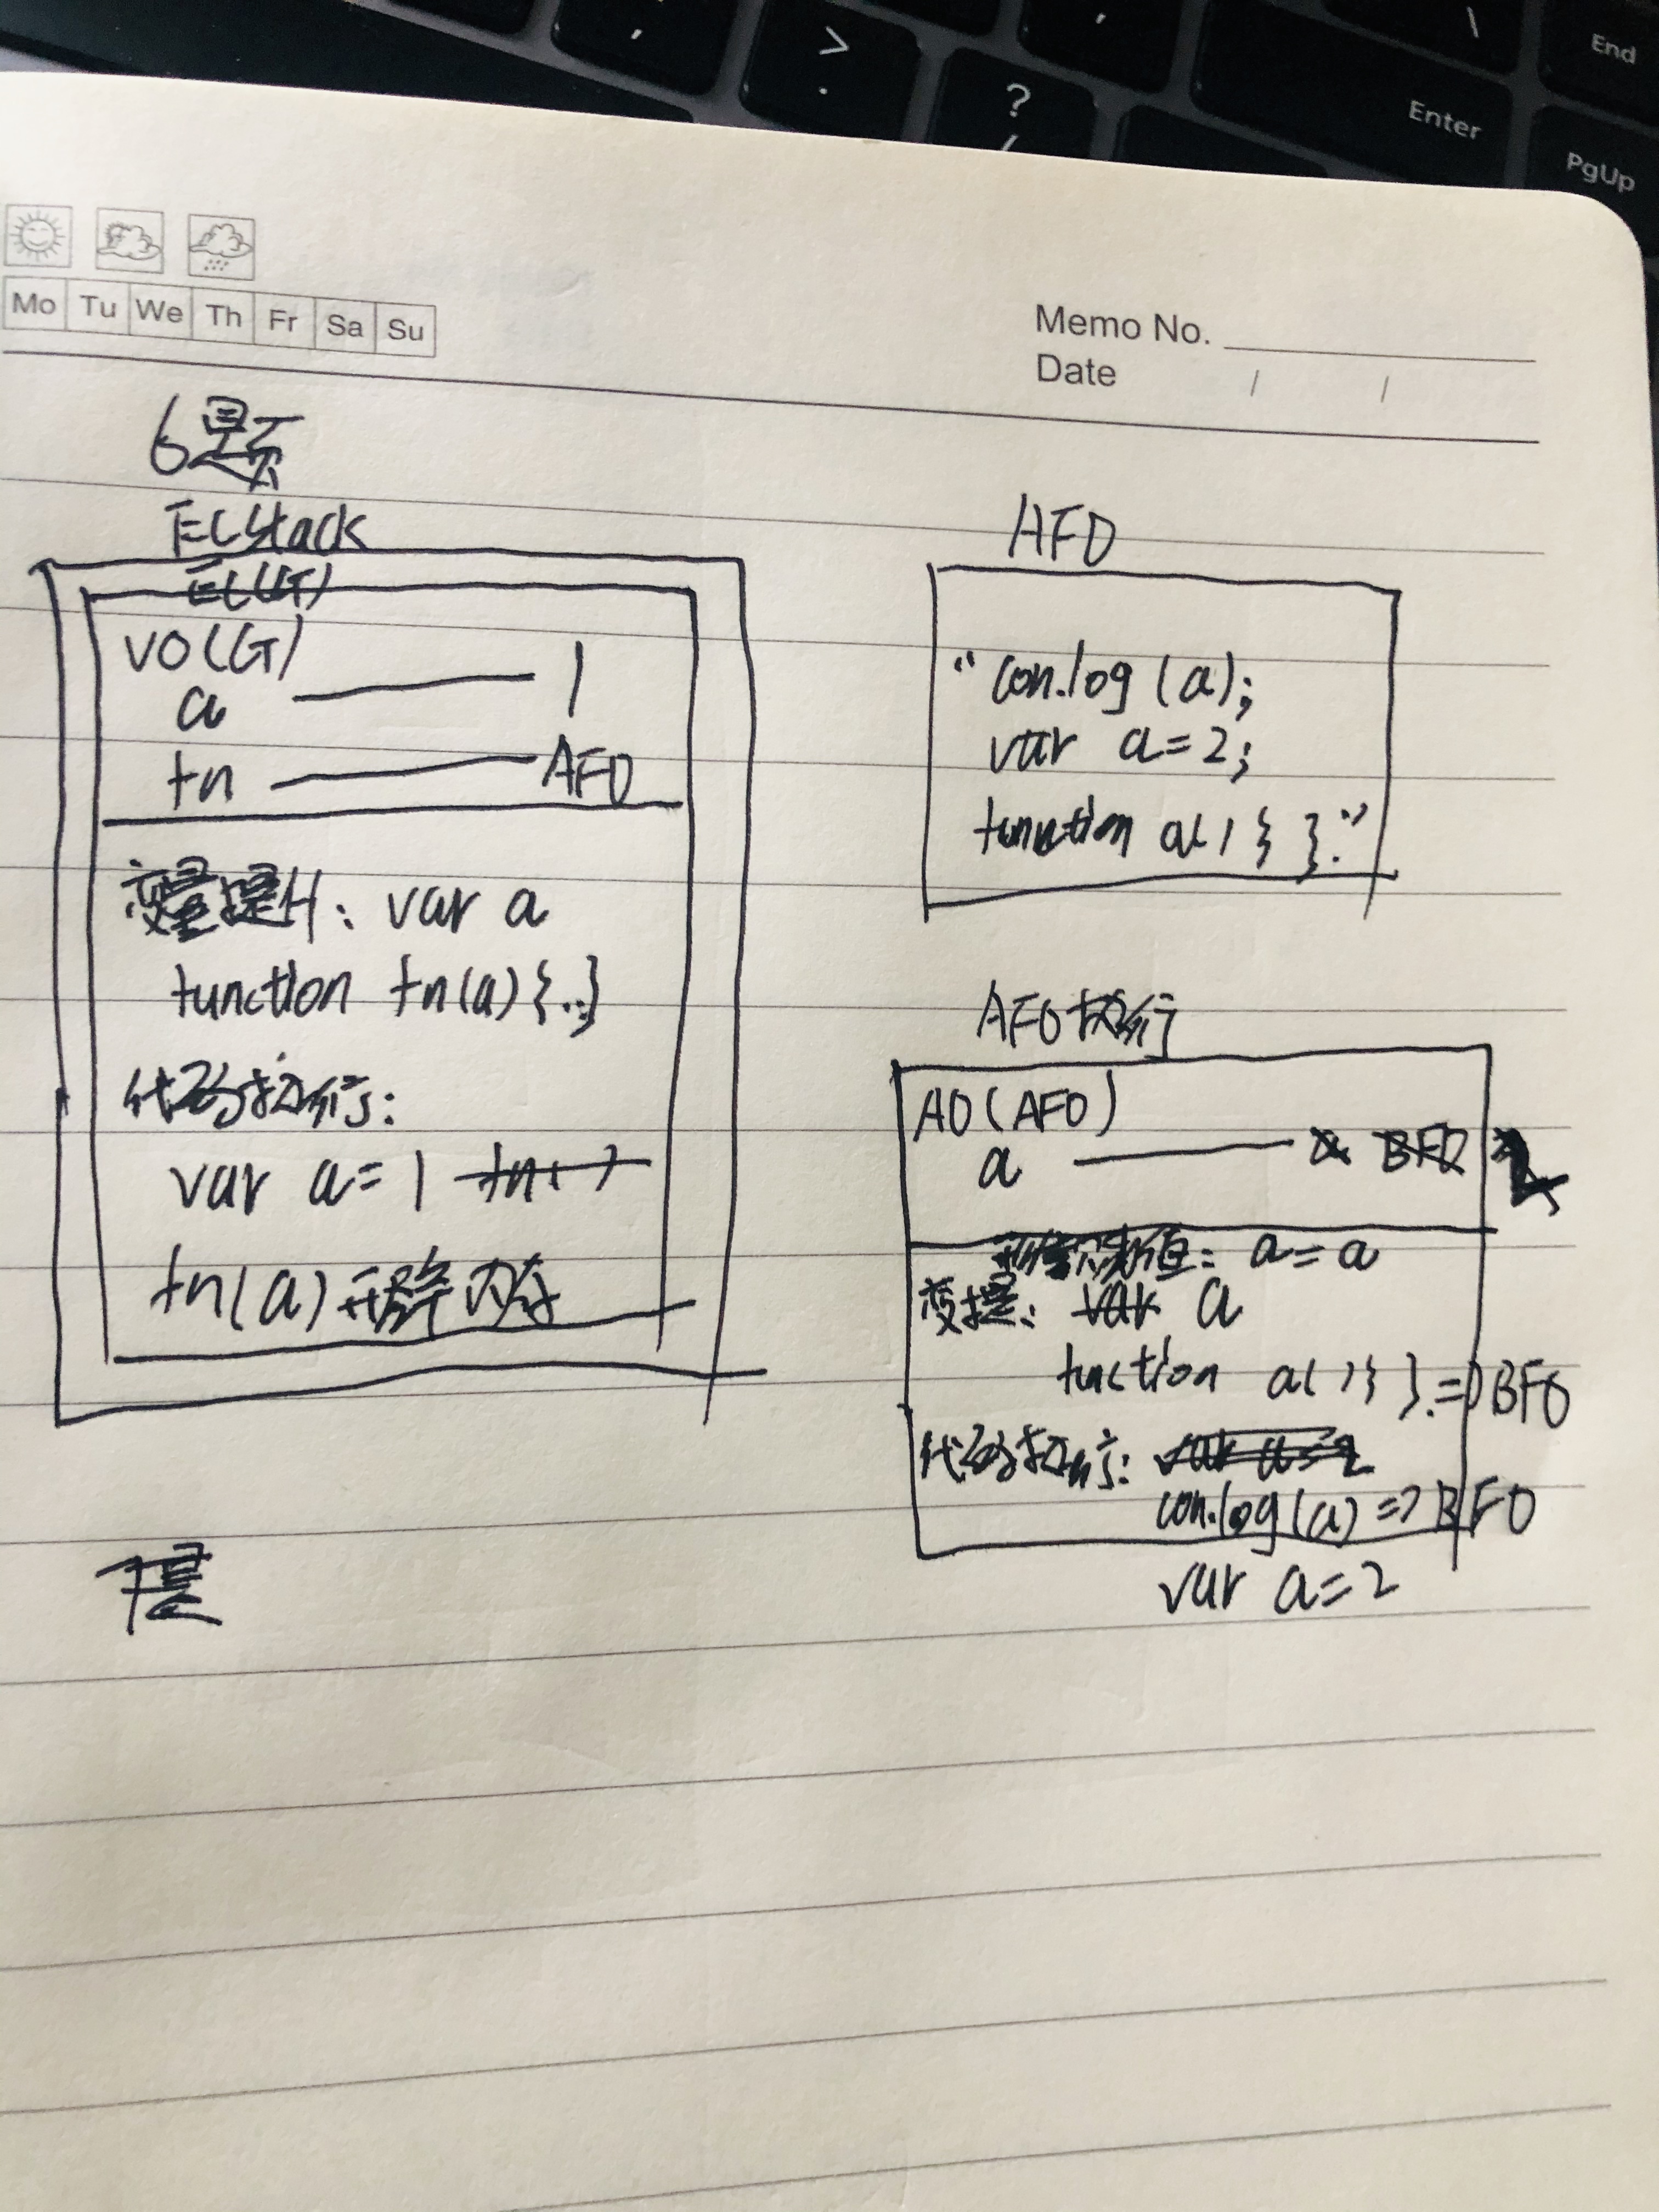 ,
>
.
?
/
,
\
End
Enter
PgUp
Mo Tu We Th Fr Sa Su
Memo No.
Date / /
6题
ECStack
EC(G)
VO(G)
a —— 1
fn —— AFO
变量提升: var a
function fn(a){..}
代码执行:
var a=1
fn(a)
AFO
"con.log(a);
var a=2;
function a(){ }."
AFO执行
AO(AFO)
a —— BFO 2
形参赋值: a=a
变提: var a
function a(){ }.=>BFO
代码执行: var a=2
con.log(a)=>BFO
var a=2
提